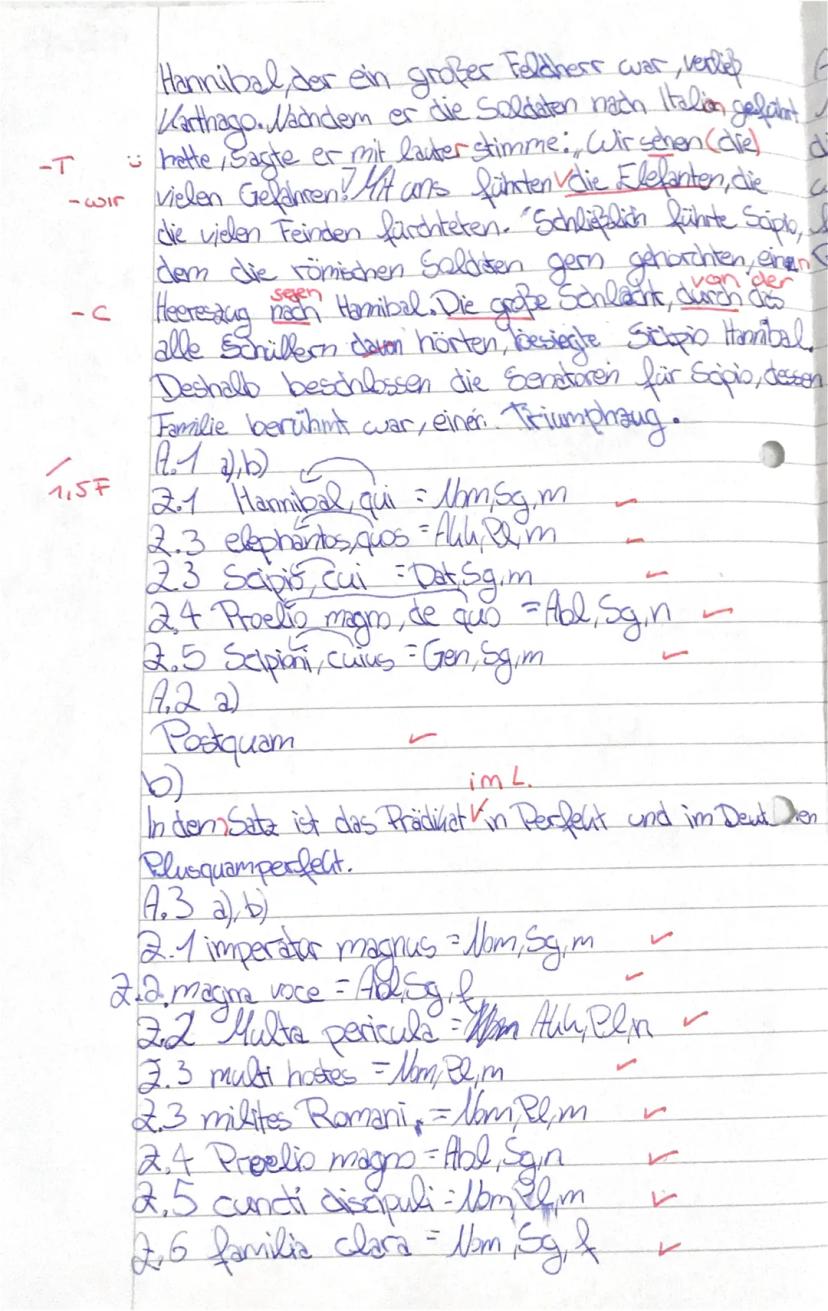 Hannibal, der ein großer Feldherr war, verließ
Karthago. Nachdem er die Soldaten nach Italien geführt
-T ü hatte, sagte er mit lauter stimme: „Wir sehen (die)
-wir vielen Gefahren! Mit uns führten die Elefanten, die
die vielen Feinden fürchteten." Schließlich führte Scipio,
dem die römischen Soldaten gern gehorchten, einen
gegen von der
-C Heereszug nach Hannibal. Die große Schlacht, durch das
alle Schülern davon hörten, besiegte Scipio Hannibal.
Deshalb beschlossen die Senatoren für Scipio, dessen
Familie berühmt war, einen Triumphzug.
A.1 a), b)
1,5F
Z.1 Hannibal, qui = Nom, Sg, m
Z.3 elephantos, quos = Akk, Pl, m
Z.3 Scipio, cui = Dat, Sg, m
Z.4 Proelio magno, de quo = Abl, Sg, n
Z.5 Scipioni, cuius = Gen, Sg, m
A.2 a)
Postquam
b) im L.
In dem Satz ist das Prädikat in Perfekt und im Deut en
Plusquamperfekt.
A.3 a), b)
Z.1 imperator magnus = Nom, Sg, m
Z.2 magna voce = Abl, Sg, f
Z.2 Multa pericula = Akk, Pl, n
Z.3 multi hostes = Nom, Pl, m
Z.3 milites Romani = Nom, Pl, m
Z.4 Proelio magno = Abl, Sg, n
Z.5 cuncti discipuli = Nom, Pl, m
Z.6 familia clara = Nom, Sg, f